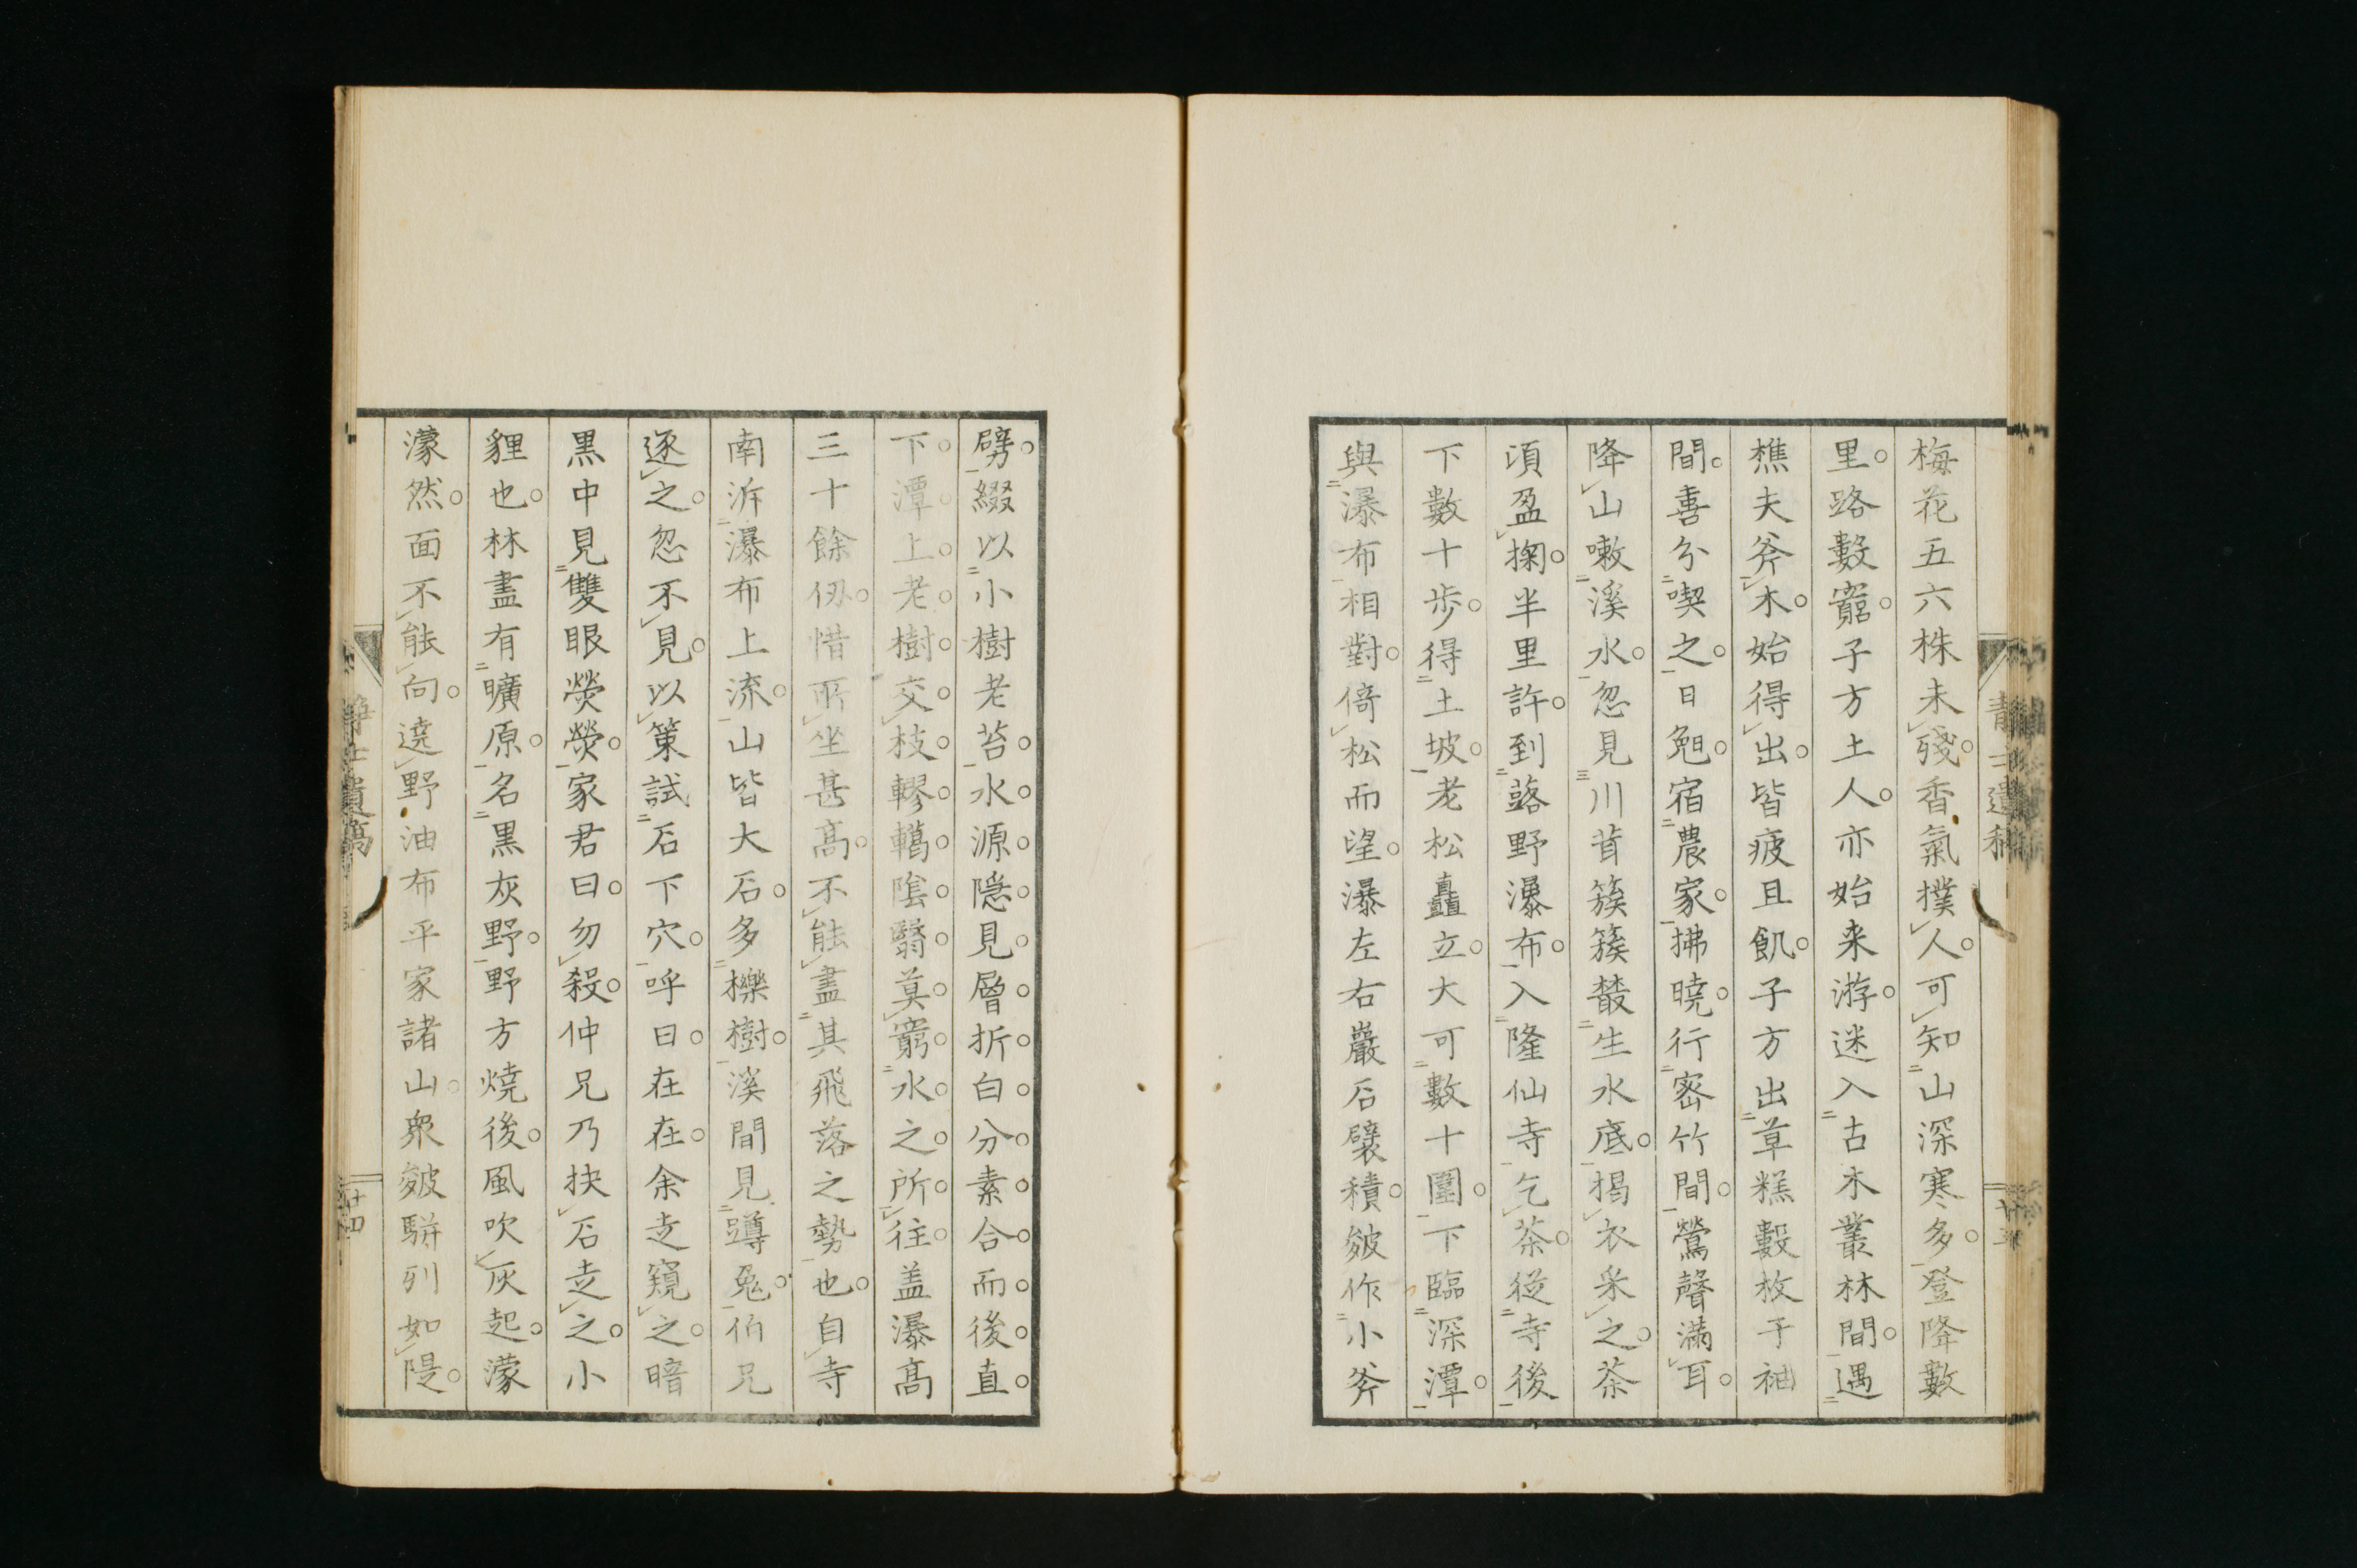 梅花五六株未殘香氣撲人可知山深寒多登降數
里路數窮子方土人亦始来游迷入古木叢林間遇
樵夫斧木始得出皆疲且飢子方出草糕數枚于袖
間喜分喫之日晩宿農家拂曉行密竹間鶯聲滿耳
降山嗽溪水忽見川苔簇簇叢生水底揭衣采之茶
頃盈掬半里許到蕗野瀑布入隆仙寺乞茶從寺後
下數十步得土坡老松矗立大可數十圍下臨深潭
與瀑布相對倚松而望瀑左右巖石襞積皴作小斧
劈綴以小樹老苔水源隱見層折白分素合而後直
下潭上老樹交枝轇轕陰翳莫窮水之所往盖瀑高
三十餘仭惜所坐甚高不能盡其飛落之勢也自寺
南泝瀑布上流山皆大石多櫟樹溪間見蹲兔伯兄
逐之忽不見以策試石下穴呼曰在在余走窺之暗
黒中見雙眼熒熒家君曰勿殺仲兄乃抉石走之小
貍也林盡有曠原名黒灰野野方燒後風吹灰起濛
濛然面不能向遶野油布平家諸山衆皴駢列如隄
靜士遺稿
廿四